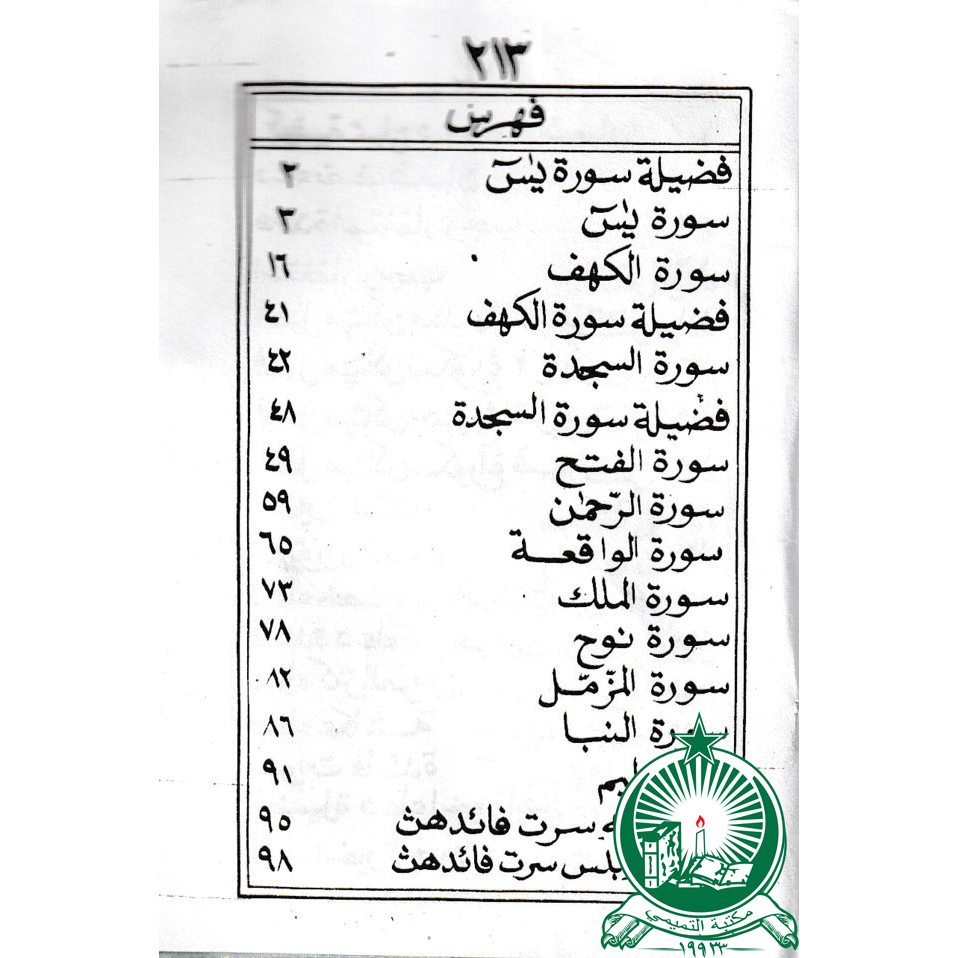 ٢١٣
فهرس
فضيلة سورة يٰسٓ ٢
سورة يٰسٓ ٣
سورة الكهف ١٦
فضيلة سورة الكهف ٤١
سورة السجدة ٤٢
فضيلة سورة السجدة ٤٨
سورة الفتح ٤٩
سورة الرّحمٰن ٥٩
سورة الواقعة ٦٥
سورة الملك ٧٣
سورة نوح ٧٨
سورة المزّمّل ٨٢
سورة النبا ٨٦
٩١
سرت فائدهث ٩٥
بلس سرت فائدهث ٩٨
مكتبة التميمي
١٩٩٣٣